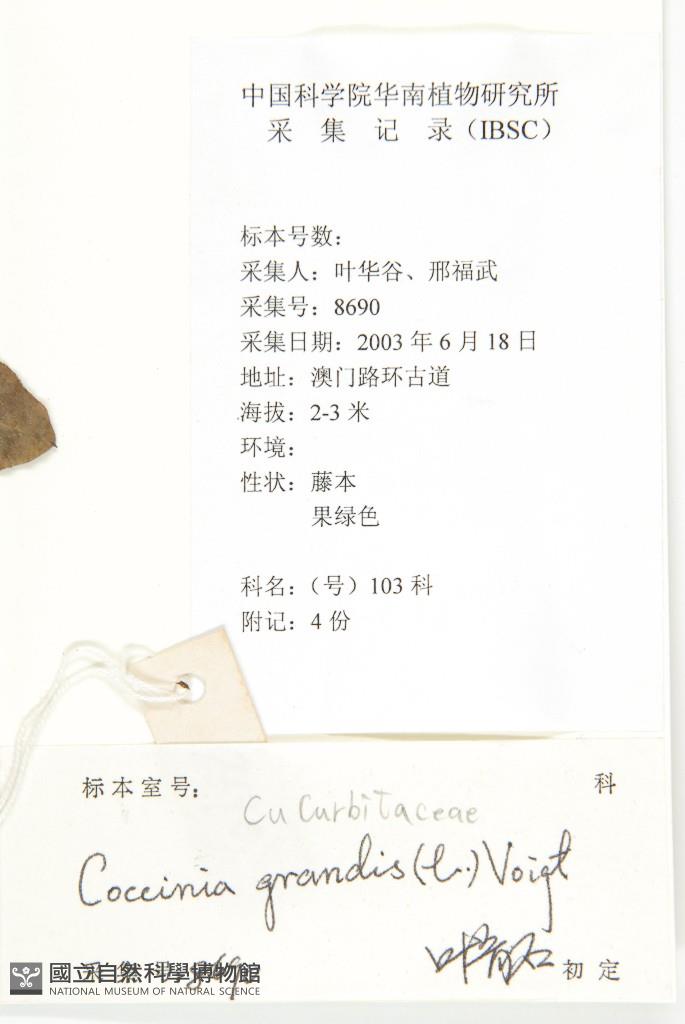 中国科学院华南植物研究所
采 集 记 录（IBSC）
标本号数：
采集人：叶华谷、邢福武
采集号：8690
采集日期：2003 年 6 月 18 日
地址：澳门路环古道
海拔：2-3 米
环境：
性状：藤本
果绿色
科名：（号）103 科
附记：4 份
标本室号： 科
Cucurbitaceae
Coccinia grandis (L.) Voigt
采集 8690 初定
國立自然科學博物館
NATIONAL MUSEUM OF NATURAL SCIENCE